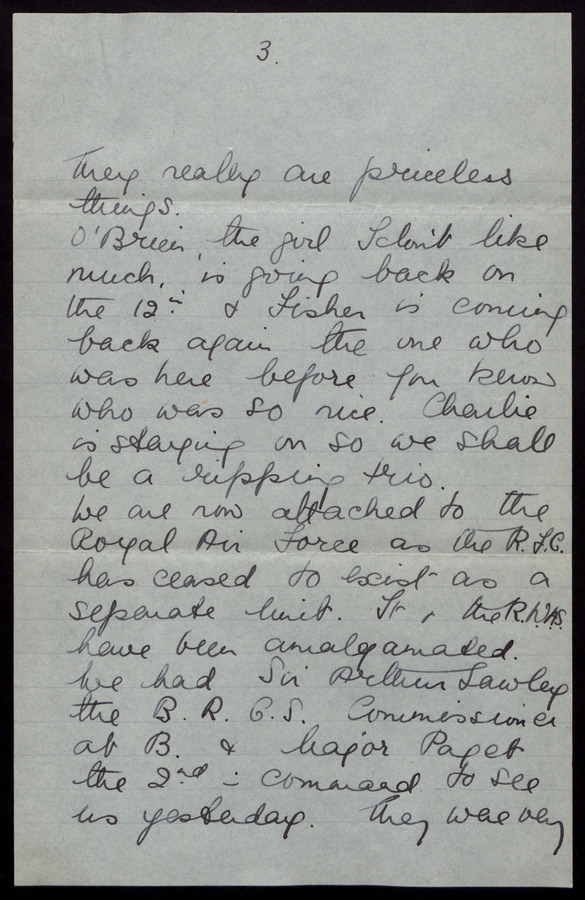 3.
They really are priceless
things.
O'Brien, the girl I don't like
much, is going back on
the 12th & Fisher is coming
back again the one who
was here before you know
who was so nice. Charlie
is staying on so we shall
be a ripping trio.
We are now attached to the
Royal Air Force as the R.F.C.
has ceased to exist as a
separate unit. It & the R.N.A.S.
have been amalgamated.
We had Sir Arthur Lawley
the B. R. C. S. Commissioner
at B. & Major Paget
the 2nd - command to see
us yesterday. They were very